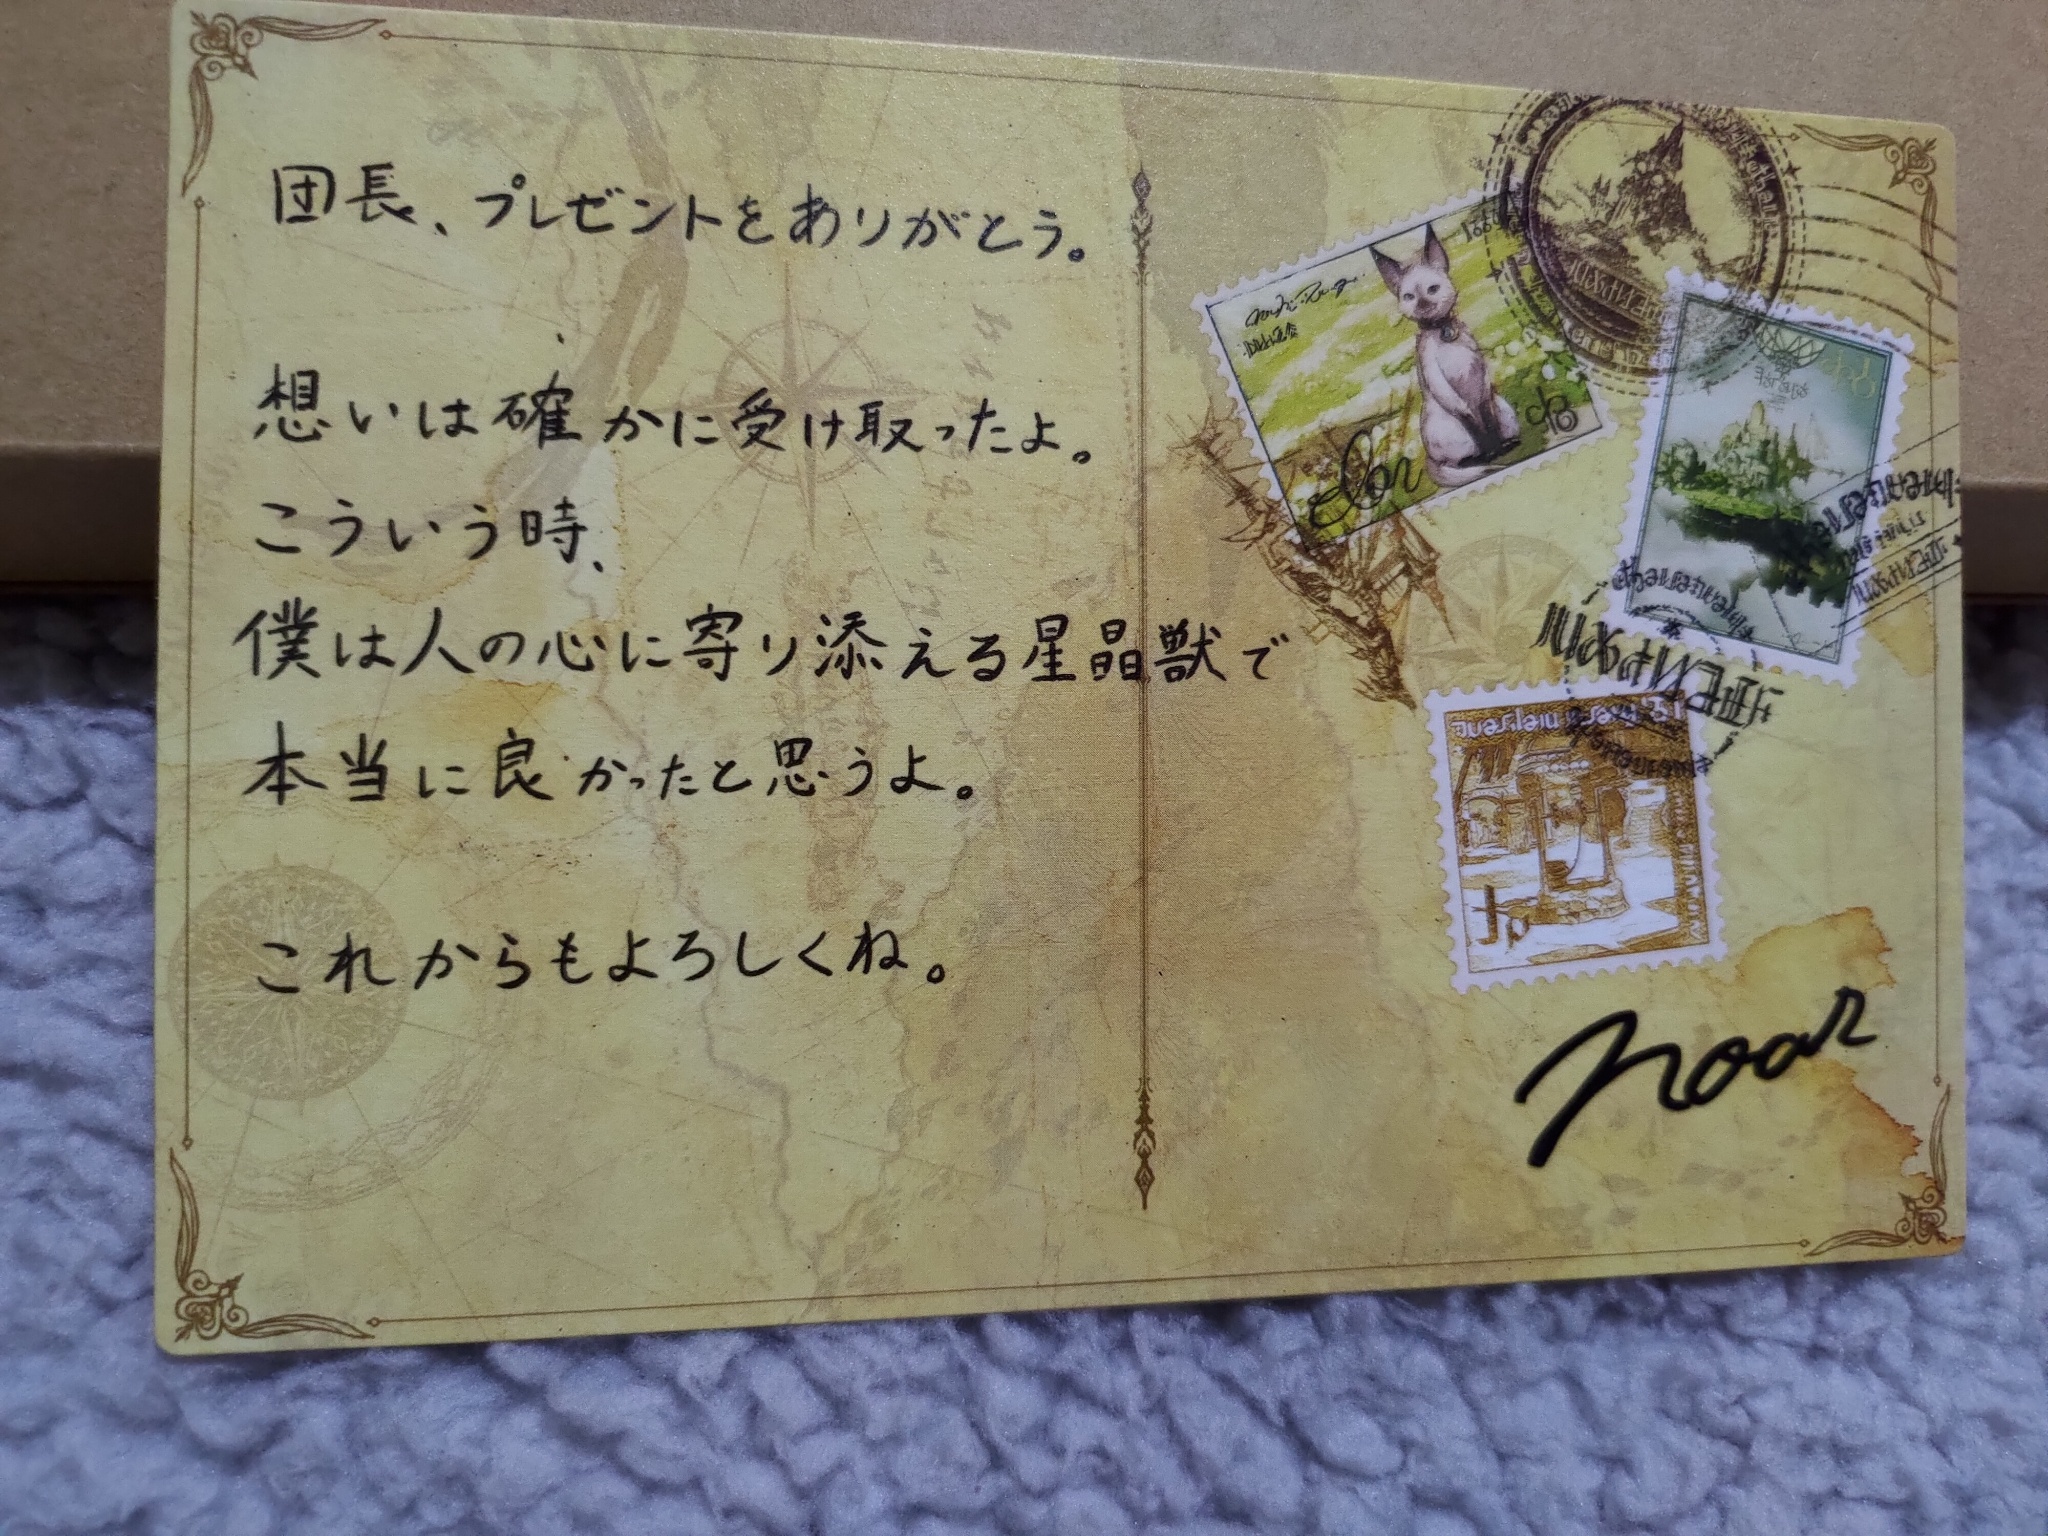 団長、プレゼントをありがとう。
想いは確かに受け取ったよ。
こういう時、
僕は人の心に寄り添える星晶獣で
本当に良かったと思うよ。
これからもよろしくね。
noar